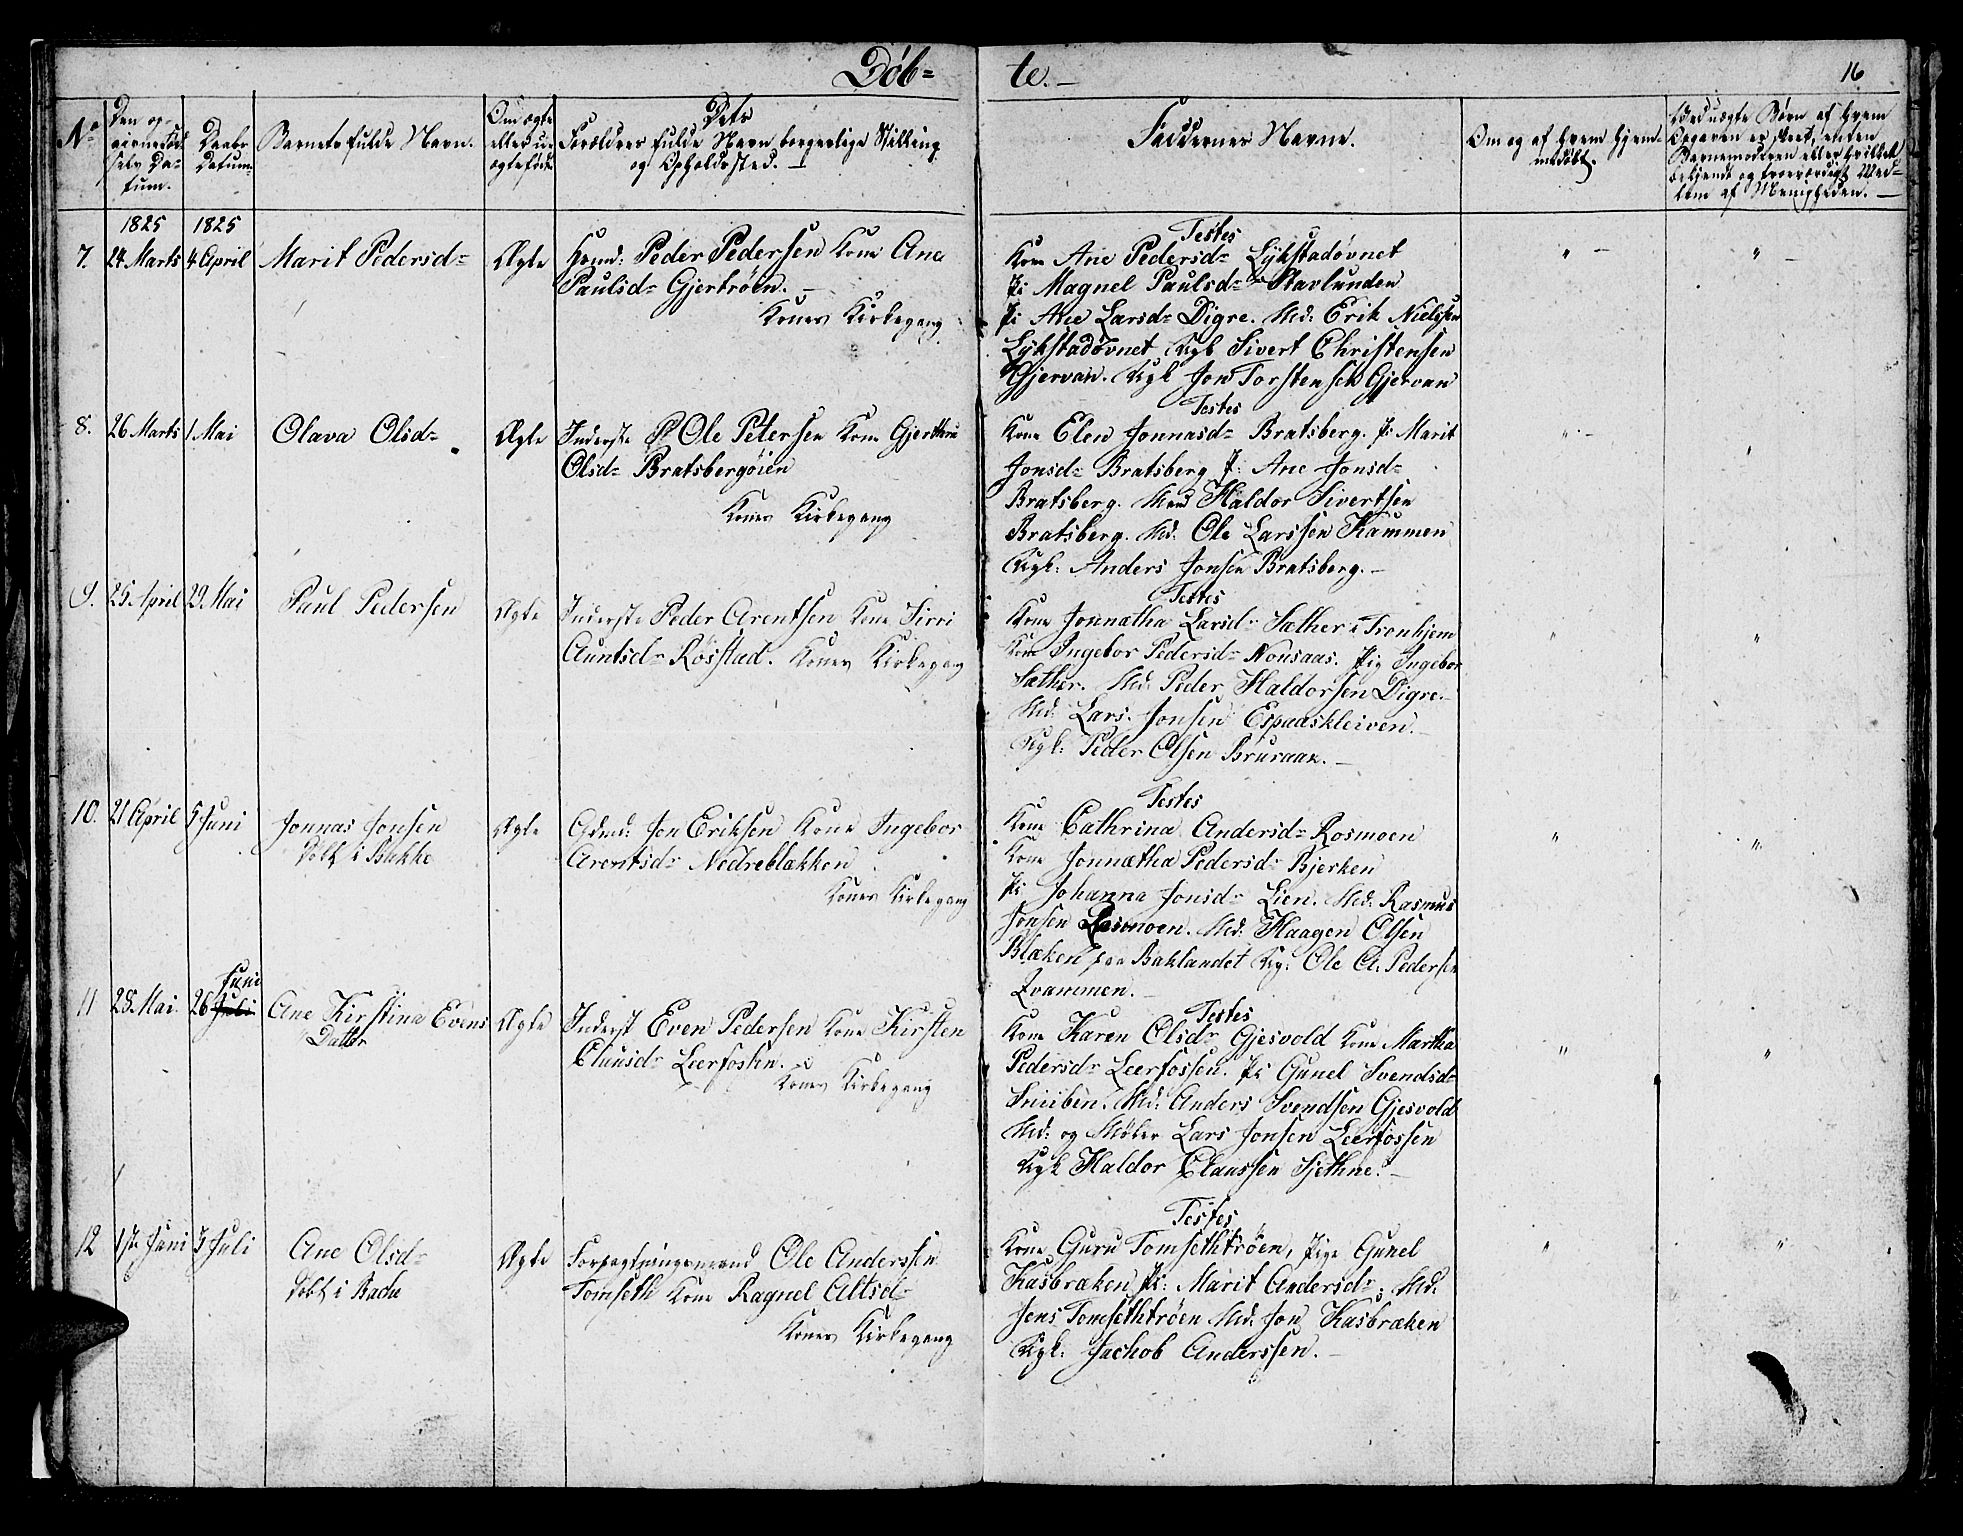 Døb= te.
16
No
Den op-
givne fød
selv Da-
tum.
Daabs
Datum.
Barnets fulde Navn.
Om ægte
eller u-
ægte født
Dets
Forældres fulde Navn borgerlige Stilling
og Opholdssted.
Faddernes Navne.
Om og af hvem hjem-
medøbt.
Ved uægte Børn af hvem
Opgaven er skeet, enten
Barnemoderen eller hvilket
bekjendt og troeværdigt Med-
lem af Menigheden.
1825 1825
7. 24 Marts 4 April Marit Pedersd= Ægte Huusm: Peder Pedersen Kone Ane
Paulsd= Gjertrøen.
Konens Kirkegang
Testes
Kone Ane Pedersd= Lykstadøvnet
Pi Magnel Paulsd= Stavlunden
Pi Ane Larsd= Digre. Md: Erik Nielssen
Lykstadøvnet Ugk Sivert Christensen
Gjervan. Ugk Jon Torstensen Gjervan
8. 26 Marts 1 Mai Olava Olsd= Ægte Inderste Ole Petersen Kone Gjertru
Olsd= Bratsbergøien
Konens Kirkegang
Testes
Kone Elen Jonnasd= Bratsberg. Pi Marit
Jonsd= Bratsberg P: Ane Jonsd=
Bratsberg. Mand Haldor Sivertsen
Bratsberg. Md. Ole Larssen Kammen
Ugk: Anders Jonsen Bratsberg.
9. 25 April 29 Mai Paul Pedersen Ægte Inderste Peder Arentsen Kone Sirri
Auntsd= Røsstad. Konens Kirkegang
Testes
Kone Jonnætha Larsd= Sæther i Tronhjem
Kone Ingebor Pedersd= Nonsaas. Pig Ingebor
Sæther. Md: Peder Haldorsen Digre.
Md: Lars Jonsen Espaaskleiven.
Ugk: Peder Olsen Bruraak.
10. 21 April 5 Juni Jonnas Jonsen Ægte Gdmd: Jon Eriksen Kone Ingebor
Døbt i Bakke
Arentsd= Nedreblækken
Konens Kirkegang
Testes
Kone Cathrina Andersd= Rosmoen
Kone Jonnætha Pedersd= Bjerken
Pi Johanna Jonsd= Lien. Md: Rasmus
Jonsen Rosmoen. Md: Haagen Olsen
Blæken paa Baklandet Ug: Ole A. Pedersen
Qvammen.
11 28 Mai. 26 Juli Juni Ane Kirstina Evens Ægte Inderst Even Pedersen Kone Kirsten
Datter
Clausd= Leerfossen.
Konens Kirkegang
Testes
Kone Karen Olsd= Gjesvold Kone Martha
Pedersd= Leerfossen. Pi Gunel Svendsd=
Sruben. Md: Anders Svendsen Gjesvold
Md: og Møler Lars Jonsen Leerfossen
Ugk Haldor Claussen Sjethne.
12 1ste Juni 3 Juli Ane Olsd= Ægte Forpagtningsmand Ole Anderssen
Døbt i Bache
Tomseth Kone Ragnel Altsd=
Konens Kirkegang
Testes
Kone Guru Tomsethtrøen, Pige Gunel
Kasbraken Pi: Marit Andersd=; Md.
Jens Tomsethtrøen Md. Jon Kasbraken
Ugk: Jachob Anderssen.